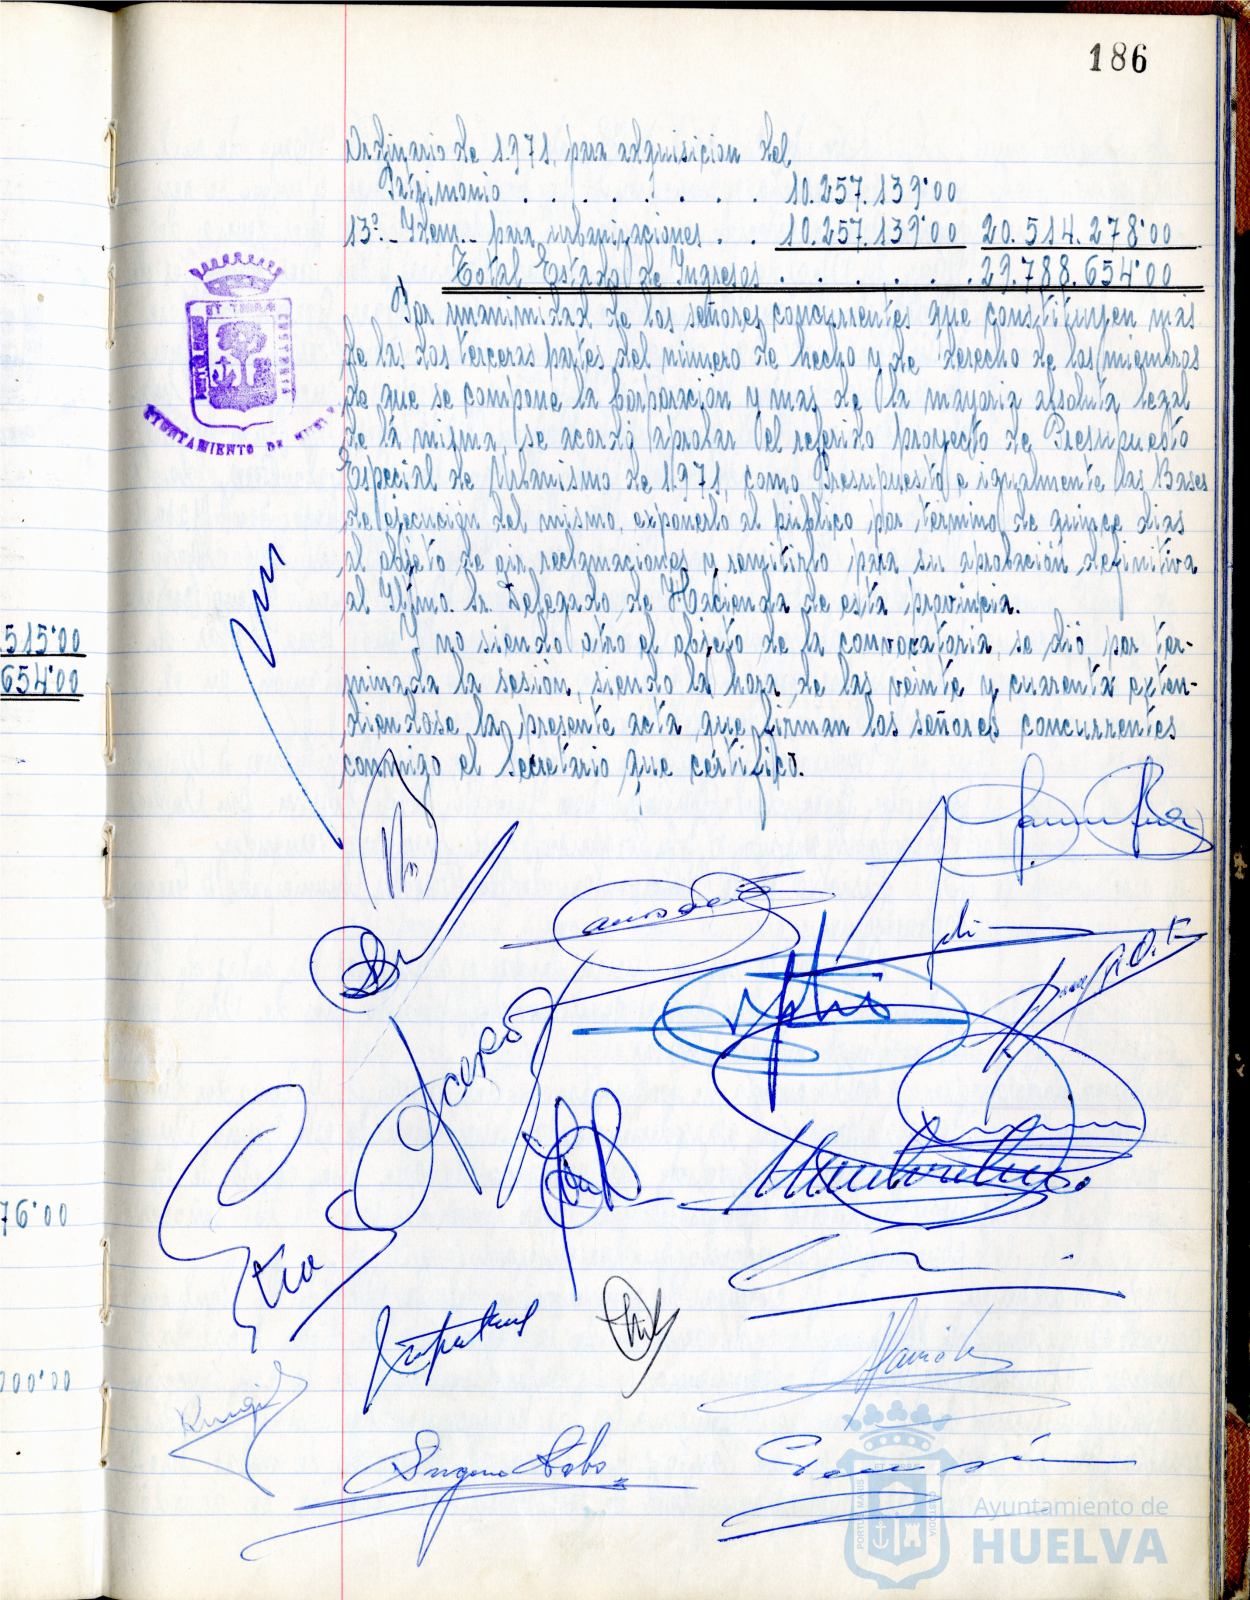 186
Ordinario de 1.971, para adquisicion del
Patrimonio . . . . . . . . 10.257.139'00
13º.- Idem.- para urbanizaciones . . 10.257.139'00 20.514.278'00
Total Estado de Ingresos . . . . . . 29.788.654'00
Por unanimidad de los señores concurrentes que constituyen más
de las dos terceras partes del número de hecho y de derecho de los miembros
de que se compone la Corporación y más de la mayoria absoluta legal
de la misma, se acordó aprobar el referido proyecto de Presupuesto
Especial de Urbanismo de 1.971, como Presupuesto e igualmente las Bases
de ejecución del mismo, exponerlo al público, por término de quince dias
al objeto de oir reclamaciones y remitirlo para su aprobación definitiva
al Iltmo. Sr. Delegado de Hacienda de esta provincia.
Y no siendo otro el objeto de la convocatoria, se dió por ter-
minada la sesión, siendo la hora de las veinte y cuarenta exten-
diendose la presente acta, que firman los señores concurrentes
conmigo el Secretario que certifico.
AYUNTAMIENTO DE HUELVA
515'00
654'00
76'00
000'00
Ayuntamiento de
HUELVA